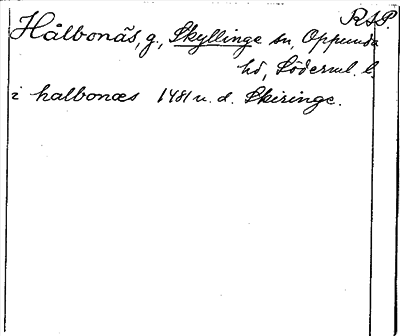 RSP.
Hålbonäs, g., Skyllinge sn, Oppunda
hd, Söderml. l.
i halbonæs 1481 u. d. Skiringe.